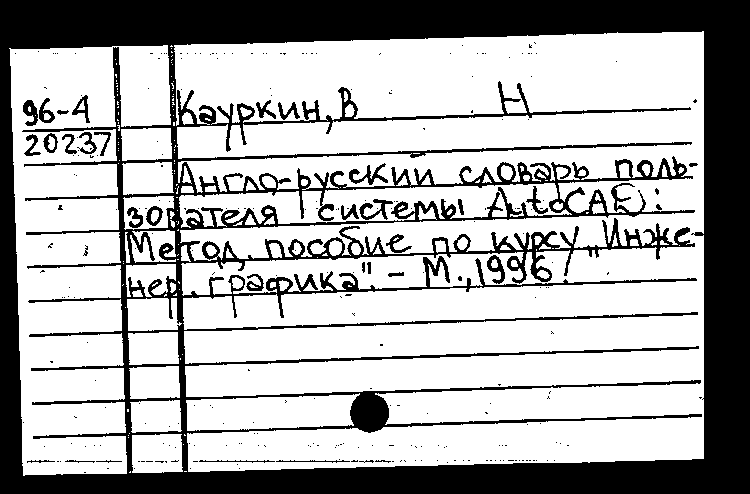 96-4 Кауркин, В Н
20237
Англо-русский словарь поль-
зователя системы AutoCAD:
Метод. пособие по курсу „Инже-
нер. графика". – М., 1996.